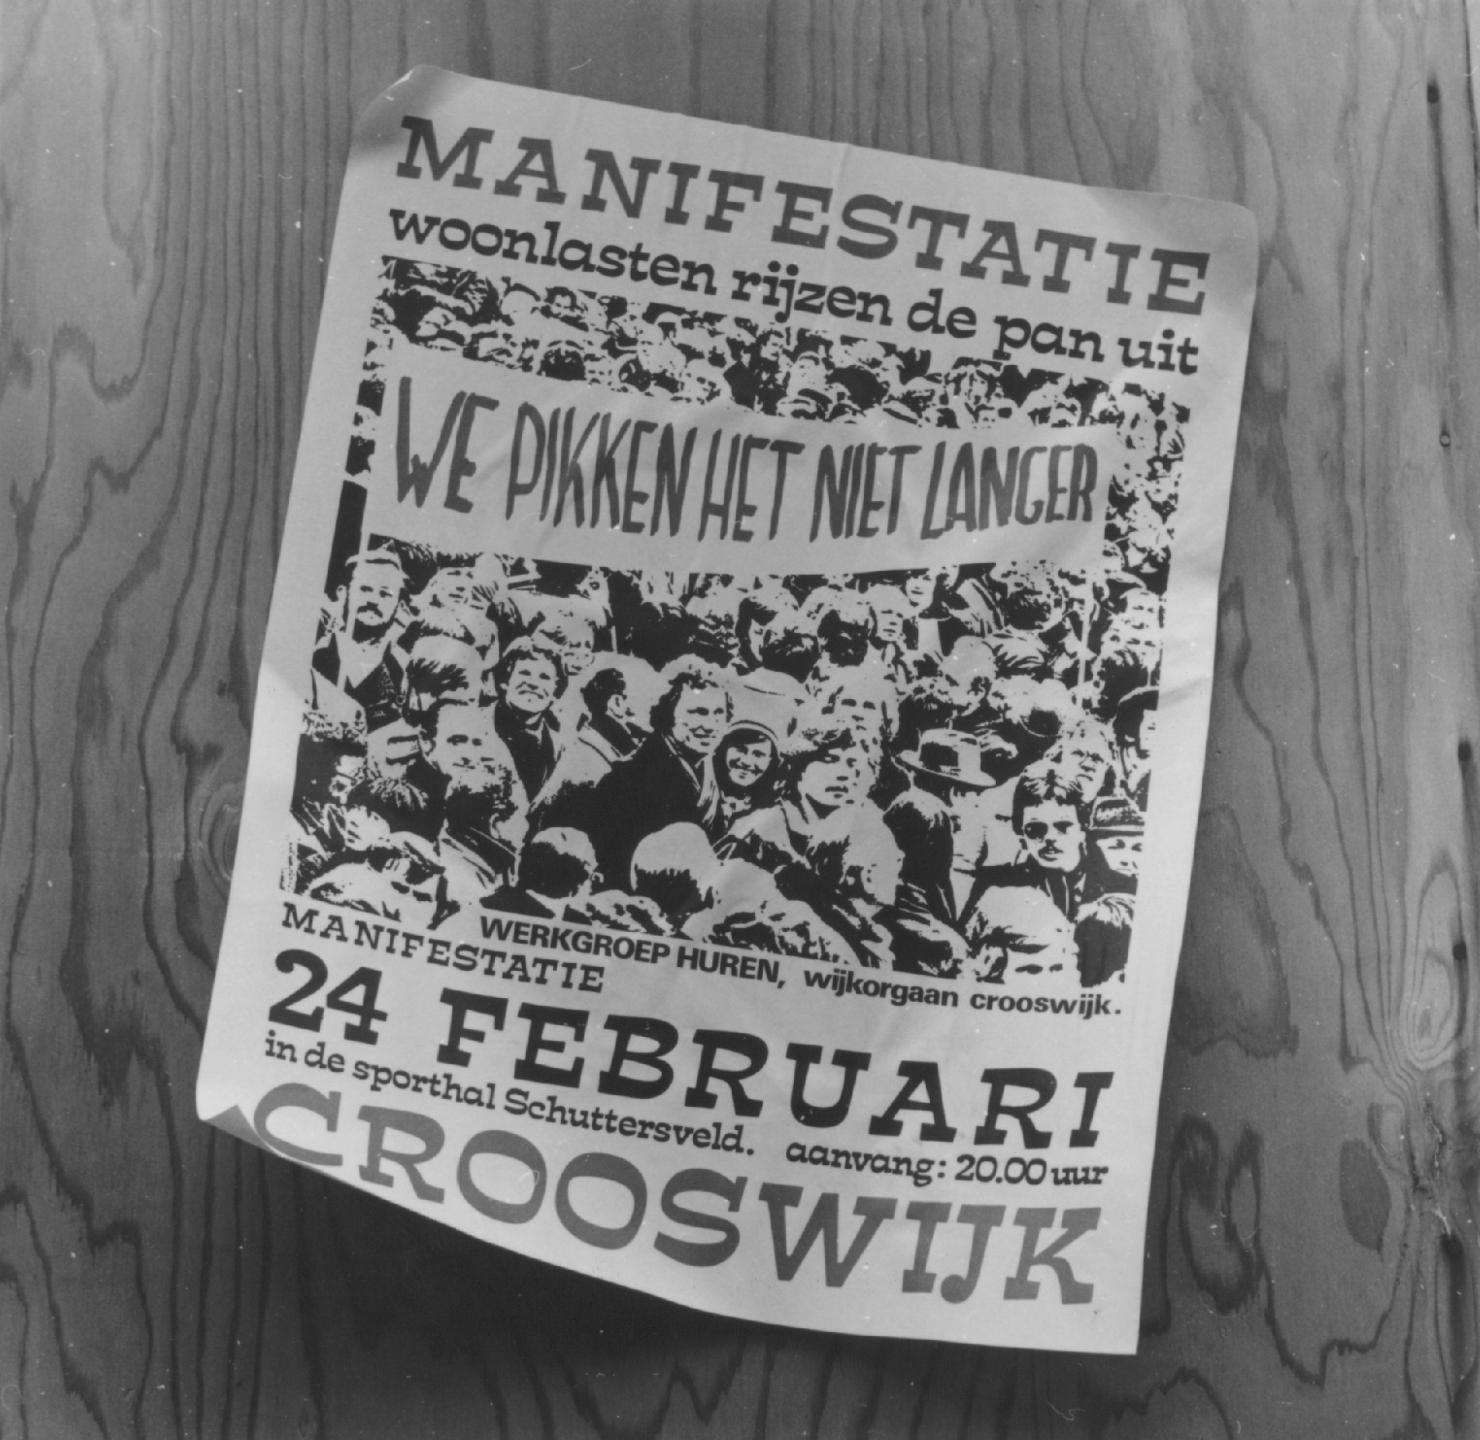 MANIFESTATIE
woonlasten rijzen de pan uit
WE PIKKEN HET NIET LANGER
WERKGROEP HUREN, wijkorgaan crooswijk.
MANIFESTATIE
24 FEBRUARI
in de sporthal Schuttersveld. aanvang: 20.00 uur
CROOSWIJK